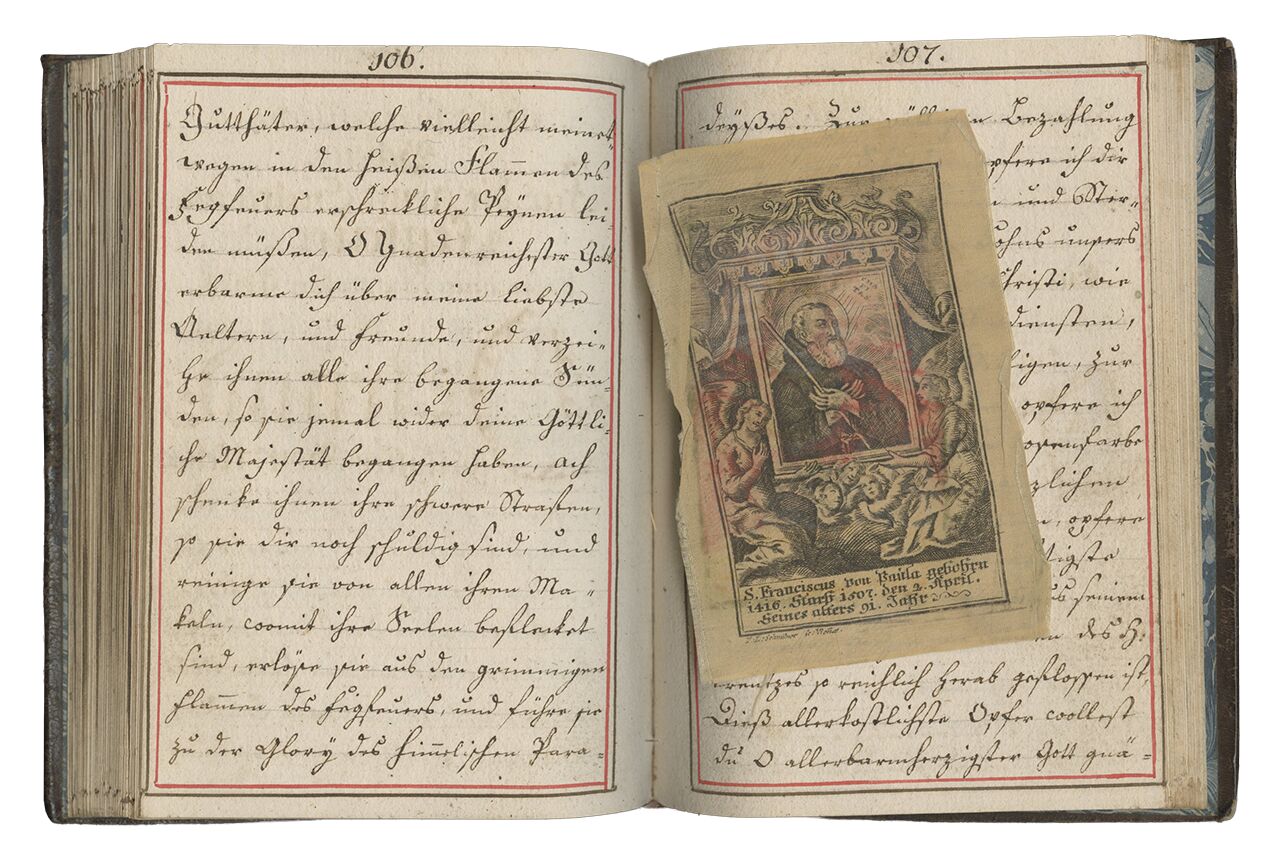 106.
Gutthäter, welche vielleicht meinet-
wegen in den heißen Flam̄en des
Fegfeuers erschreckliche Peynen lei-
den müßen, O Gnadenreichester Gott
erbarme dich über meine liebste
Aeltern, und Freunde, und verzei-
he ihnen alle ihre begangene Sün-
den, so sie jemal wider deine Göttli-
che Majestät begangen haben, ach
schenke ihnen ihre schwere Straffen,
so sie dir noch schuldig sind, und
reinige sie von allen ihren Ma-
keln, womit ihre Seelen beflecket
sind, erlöse sie aus den grimmigen
Flam̄en des Fegfeuers, und führe sie
zu der Glory des him̄elischen Para-
107.
deyßes. Zur Bezahlung
opfere ich dir
und Ster-
ohns unsers
Christi, wie
diensten,
igen, zur
opfere ich
osenfarbe
zlichen
opfere
tigste
s seinem
des H:
reutzes so reichlich herab geflossen ist,
Dieß allerkostlichste Opfer woollest
du O allerbarmherzigster Gott gnä-
S. Franciscus von Paula gebohrn
1416. Starb 1507. den 2. April.
Seines alters 91. Jahr